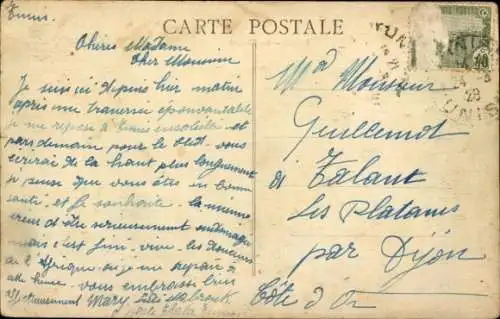 Tunis.
CARTE POSTALE
Chère Madame
Cher Monsieur
Je suis ici depuis hier matin
après une traversée épouvantable
je me repose à Tunis ensoleillée et
pars demain pour le bled. vous
écrirai de la haut plus longuement
je pense que vous êtes en bonne
santé, et le souhaite. la mienne
vient d'être sérieusement endommagée
mais c'est fini, vive les douceurs
de l'Afrique où je me repair à
vous embrasse bien
Mary
Md Monsieur
Guillemot
à Talant
Les Platanes
par Dijon
Côte d'Or
TUNIS